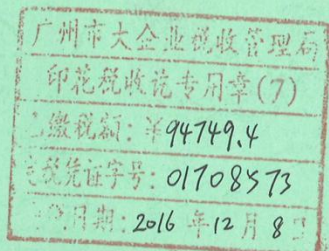 广州市大企业税收管理局
印花税收讫专用章(7)
缴税额：¥94749.4
税凭证字号：01708573
日期：2016年12月8日